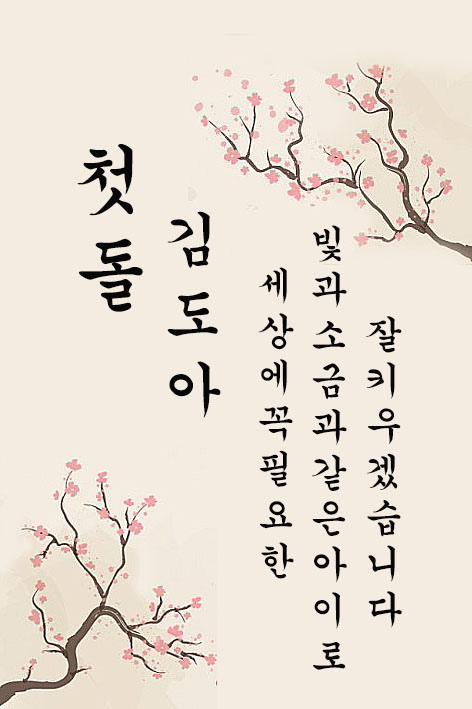 첫돌
김도아
세상에꼭필요한
빛과소금과같은아이로
잘키우겠습니다